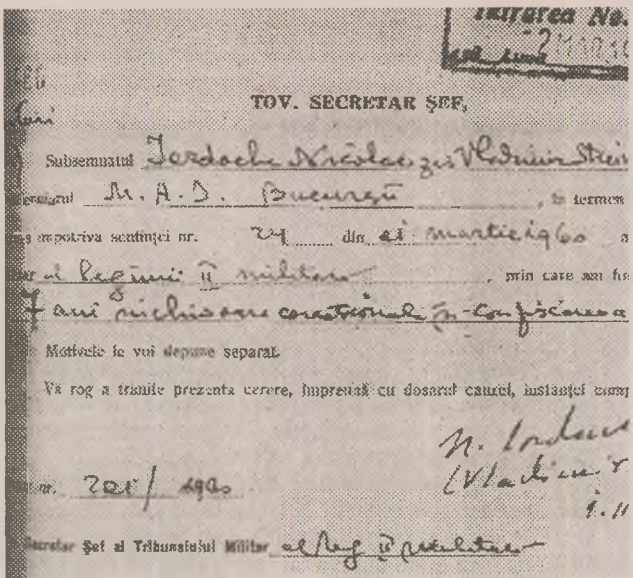 Intrarea No.
TOV. SECRETAR ŞEF,
Subsemnatul Iordache Nicolae zis Vladimir Strei
M. A. I. Bucureşti, în termen
împotriva sentinţei nr. 24 din 21 martie 1960 a
al Regiunii II militare, prin care am fo
7 ani închisoare corecţională şi confiscarea a
Motivele le voi depune separat.
Vă rog a trimite prezenta cerere, împreună cu dosarul cauzei, instanţei comp
N. Iordac
(Vladimir
nr. 201/ 1960
Secretar Şef al Tribunalului Militar al Reg II Militare